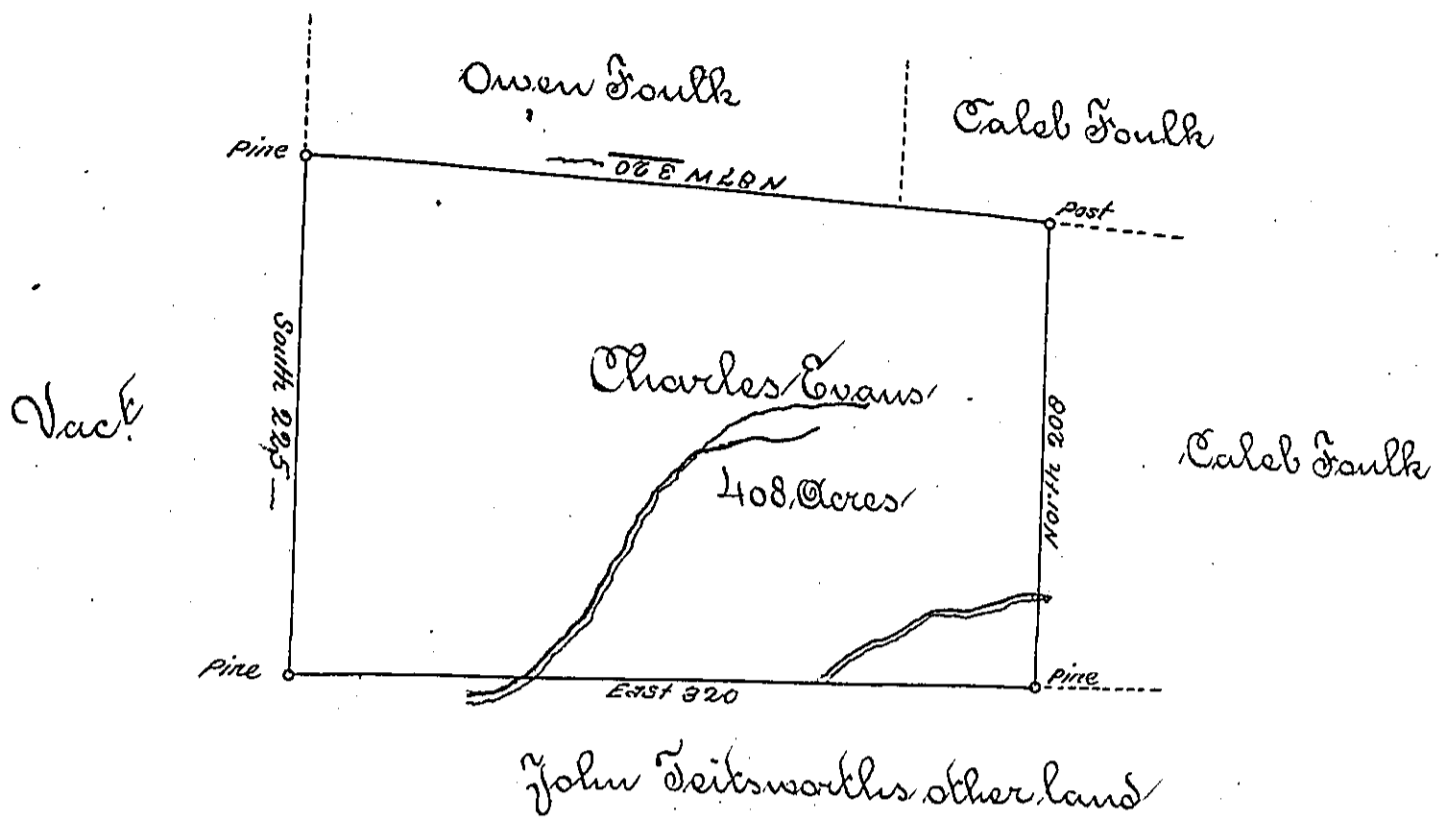 Owen Foulk
Caleb Foulk
Pine
N 87 W 320
Post
South 225
Charles Evans
Vact
North 208
Caleb Foulk
408 Acres
Pine
East 320
Pine
John Teitsworths other land